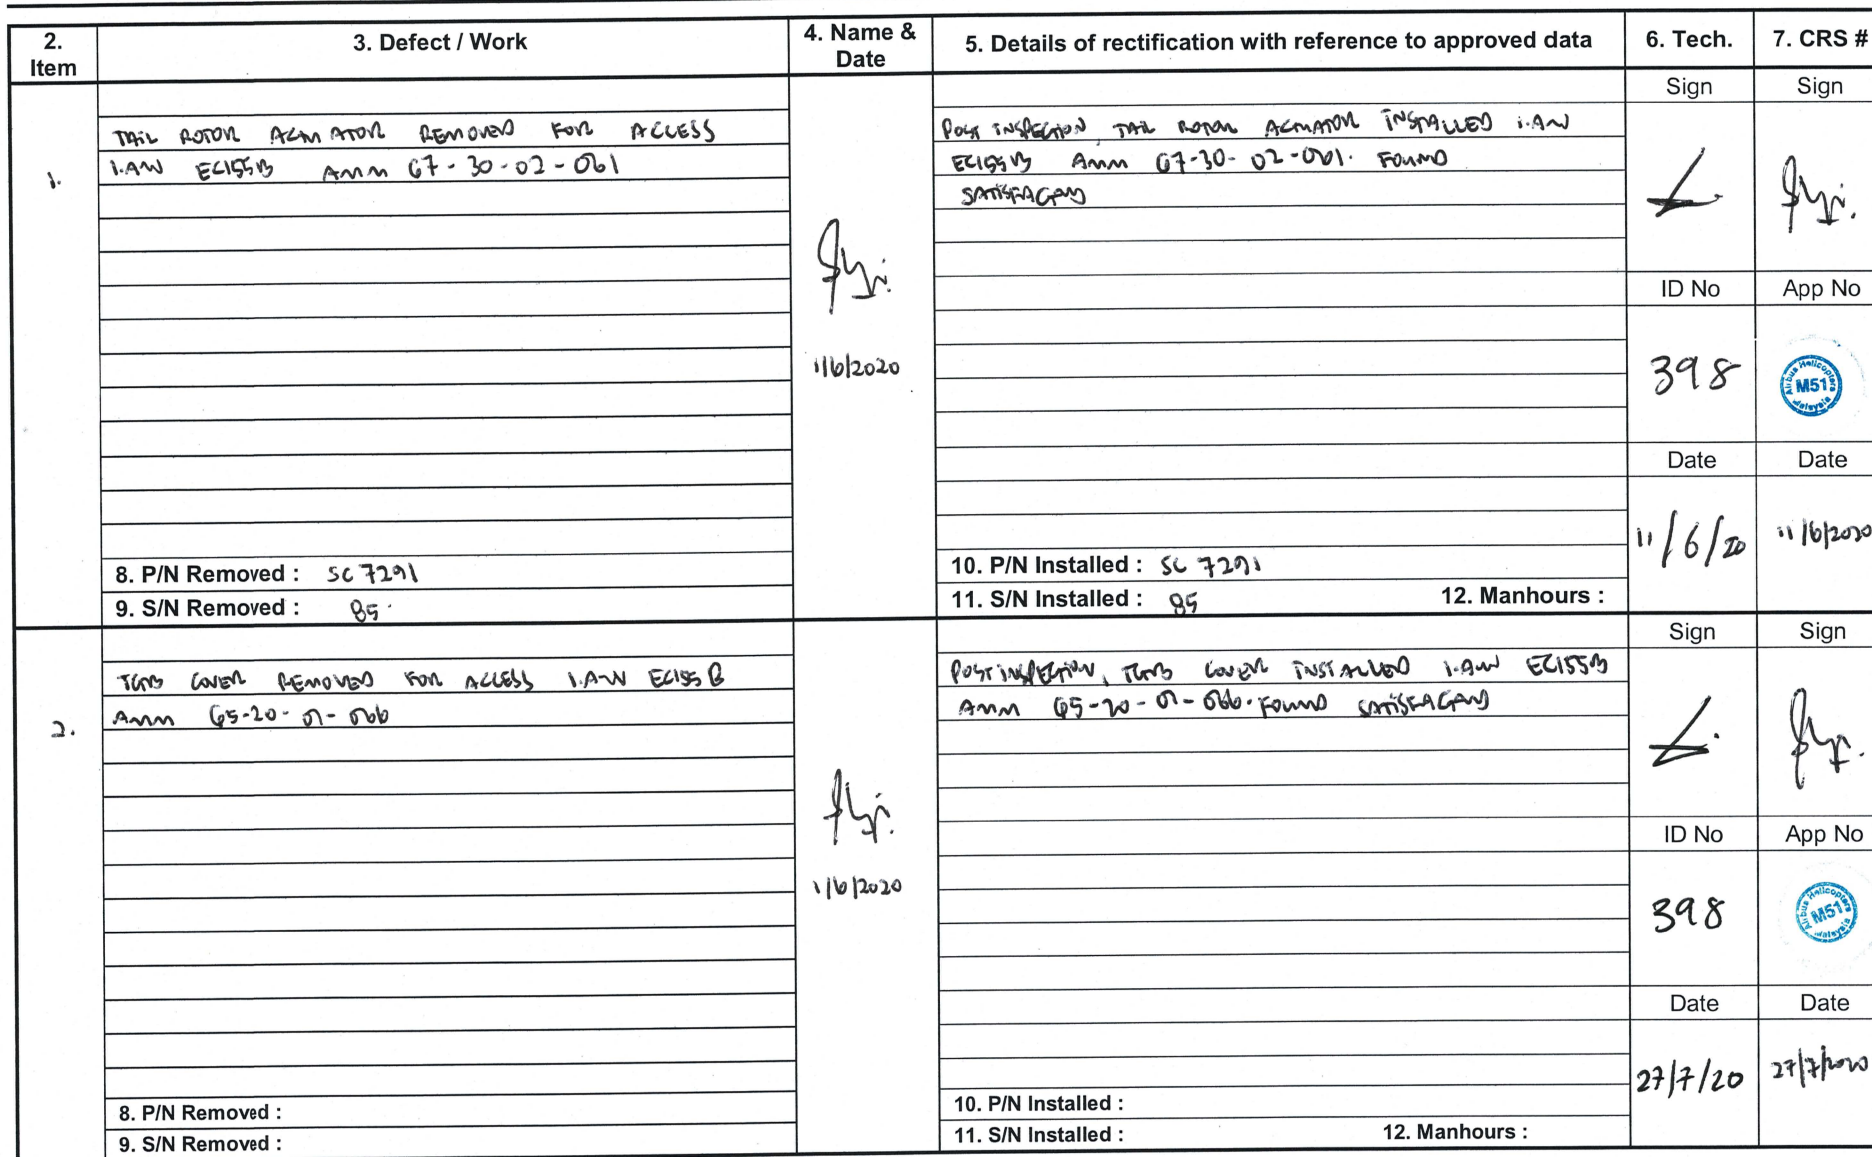 2. Item
3. Defect / Work
4. Name & Date
5. Details of rectification with reference to approved data
6. Tech.
7. CRS #
1.
TAIL ROTOR ACTUATOR REMOVED FOR ACCESS
I.A.W EC155B AMM 67-30-02-061
1/6/2020
POST INSPECTION, TAIL ROTOR ACTUATOR INSTALLED I.A.W
EC155B AMM 67-30-02-061. FOUND
SATISFACTORY
Sign
Sign
ID No
App No
398
Airbus Helicopters
M51
Malaysia
Date
Date
11/6/20
11/6/2020
8. P/N Removed : SC 7291
9. S/N Removed : 85.
10. P/N Installed : SC 7291
11. S/N Installed : 85
12. Manhours :
2.
TGB COVER REMOVED FOR ACCESS I.A.W EC155B
AMM 65-20-01-066
1/6/2020
POST INSPECTION, TGB COVER INSTALLED I.A.W EC155B
AMM 65-20-01-066. FOUND SATISFACTORY
Sign
Sign
ID No
App No
398
Airbus Helicopters
M51
Malaysia
Date
Date
27/7/20
27/7/2020
8. P/N Removed :
9. S/N Removed :
10. P/N Installed :
11. S/N Installed :
12. Manhours :